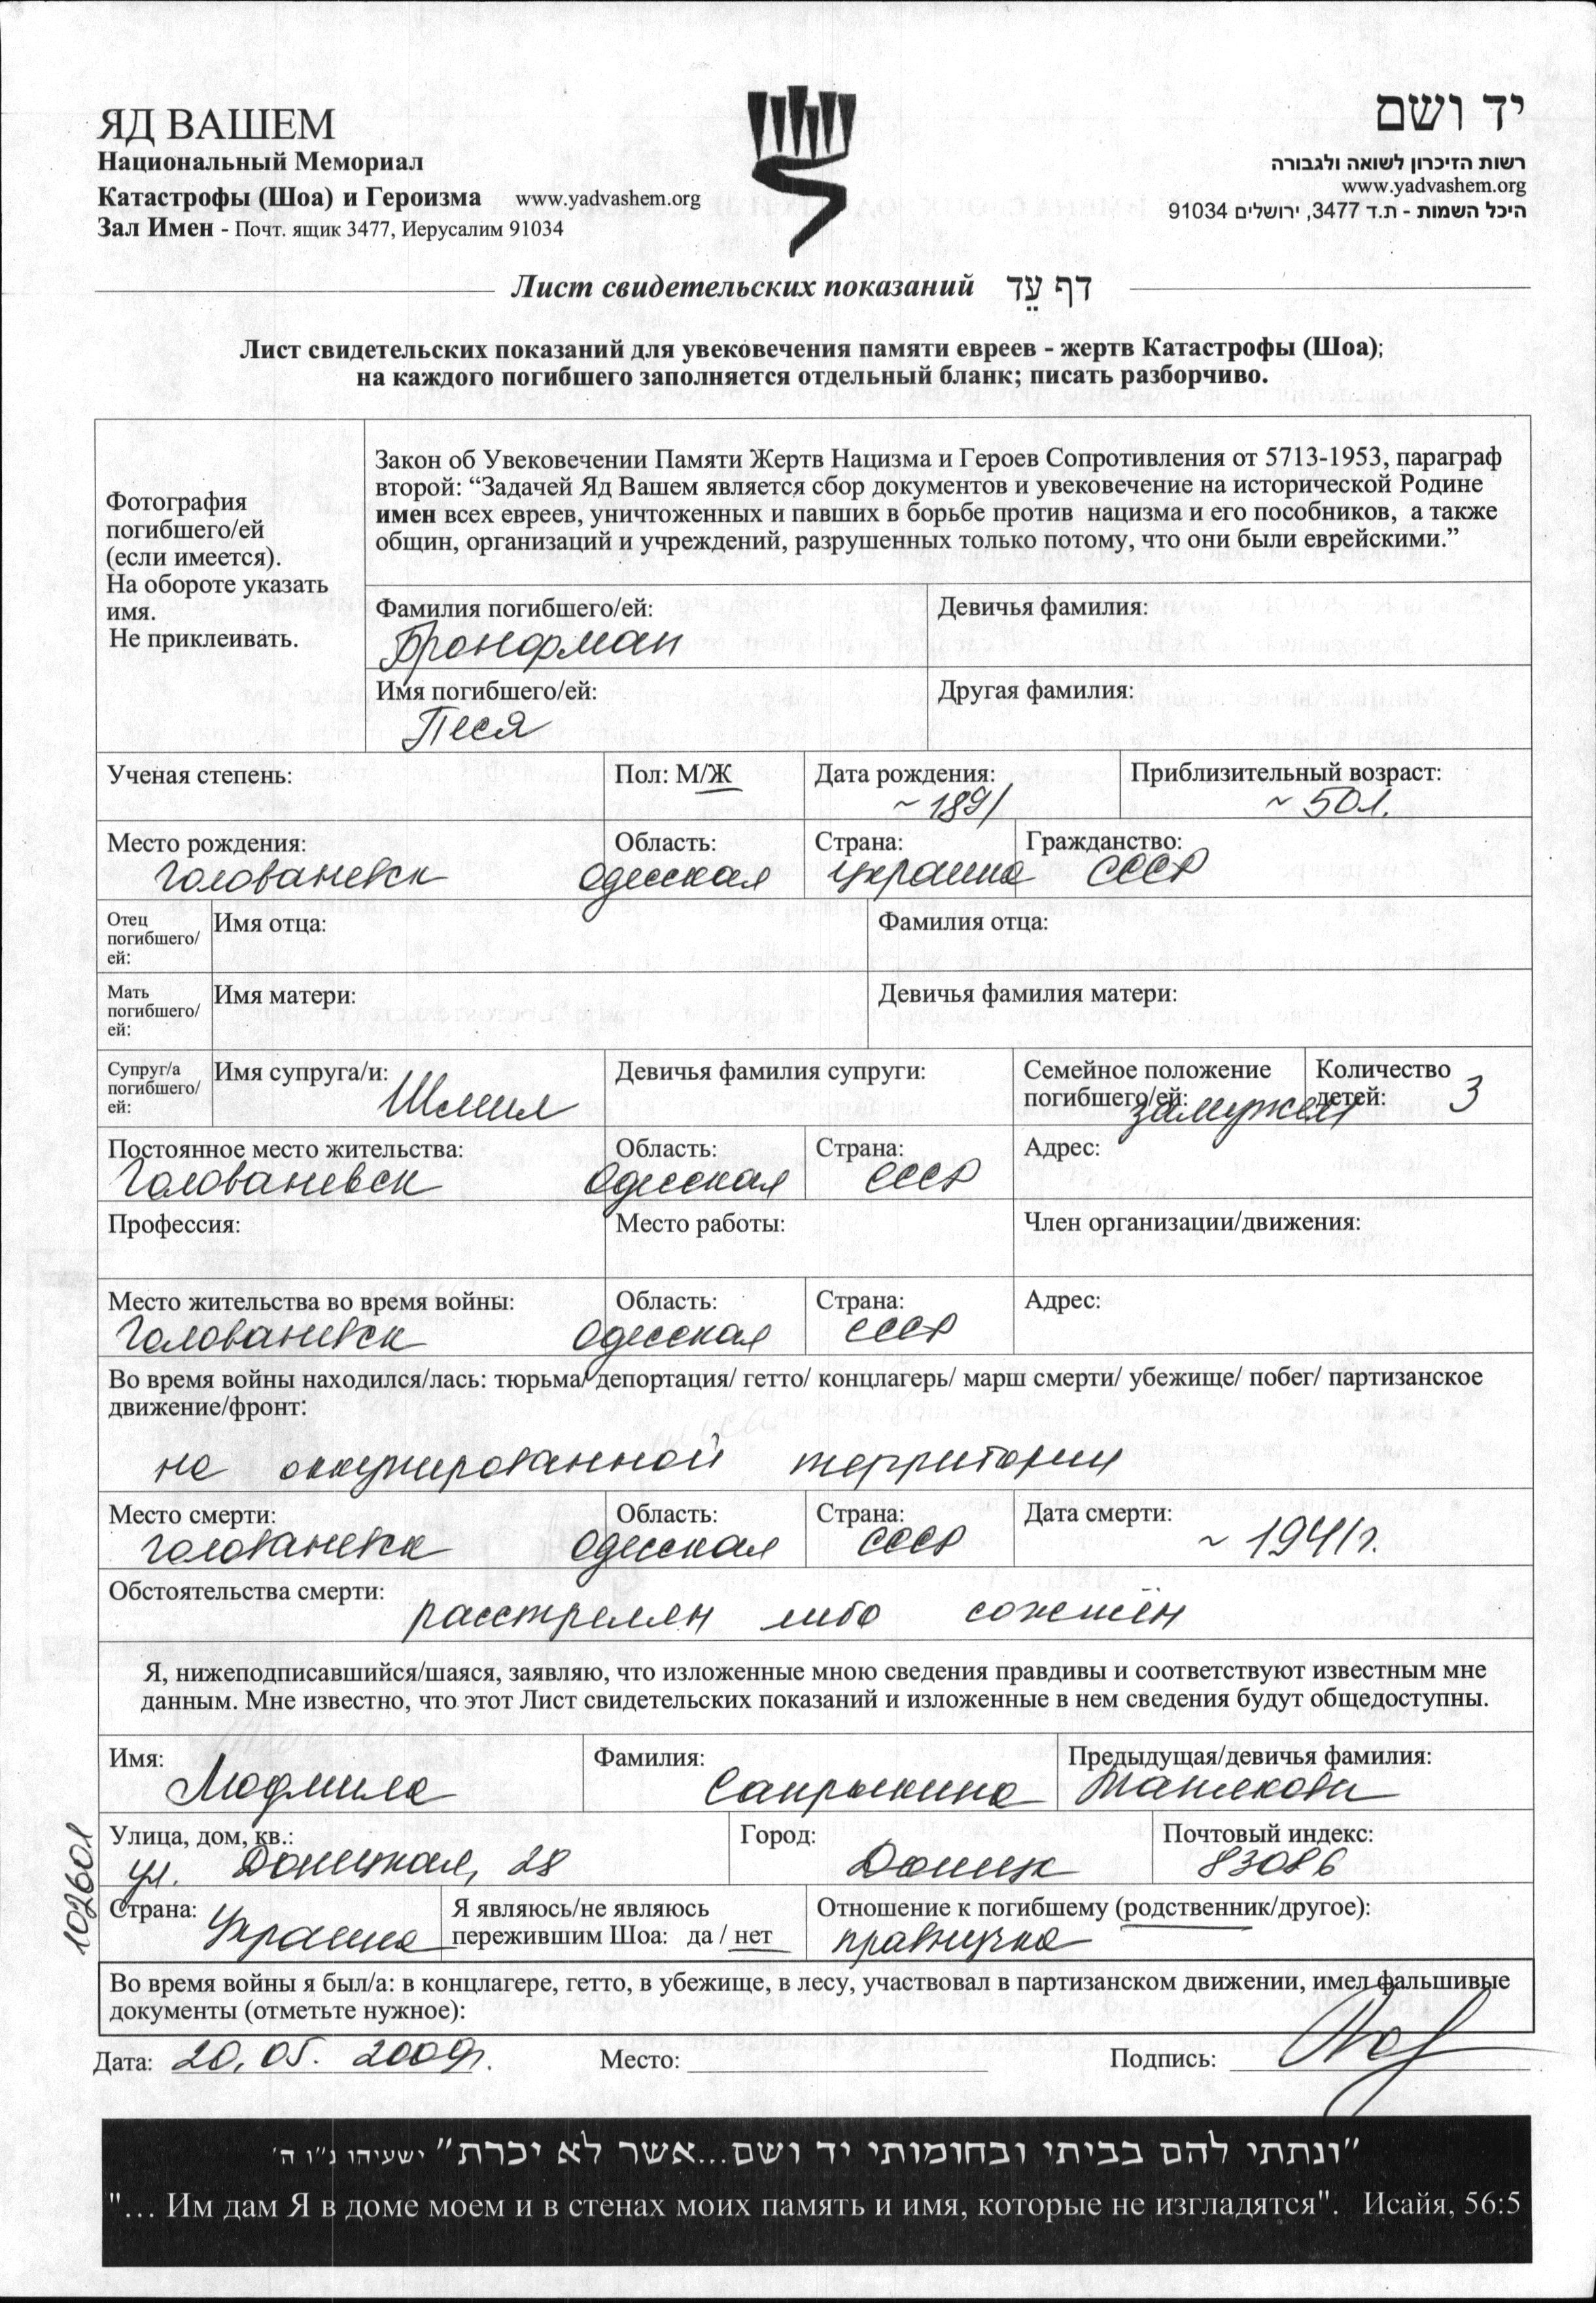 ЯД ВАШЕМ
Национальный Мемориал
Катастрофы (Шоа) и Героизма www.yadvashem.org
Зал Имен - Почт. ящик 3477, Иерусалим 91034
יד ושם
רשות הזיכרון לשואה ולגבורה
www.yadvashem.org
היכל השמות - ת.ד 3477, ירושלים 91034
Лист свидетельских показаний דף עֵד
Лист свидетельских показаний для увековечения памяти евреев - жертв Катастрофы (Шоа);
на каждого погибшего заполняется отдельный бланк; писать разборчиво.
Фотография
погибшего/ей
(если имеется).
На обороте указать
имя.
Не приклеивать.
Закон об Увековечении Памяти Жертв Нацизма и Героев Сопротивления от 5713-1953, параграф
второй: “Задачей Яд Вашем является сбор документов и увековечение на исторической Родине
имен всех евреев, уничтоженных и павших в борьбе против нацизма и его пособников, а также
общин, организаций и учреждений, разрушенных только потому, что они были еврейскими.”
Фамилия погибшего/ей: Девичья фамилия:
Бронфман
Имя погибшего/ей: Другая фамилия:
Песя
Ученая степень: Пол: М/Ж Дата рождения: Приблизительный возраст:
~ 1891 ~ 50 л.
Место рождения: Область: Страна: Гражданство:
Голованевск Одесская Украина СССР
Отец
погибшего/
ей:
Имя отца: Фамилия отца:
Мать
погибшего/
ей:
Имя матери: Девичья фамилия матери:
Супруг/а
погибшего/
ей:
Имя супруга/и: Шмил Девичья фамилия супруги:
Семейное положение
погибшего/ей: замужем
Количество
детей: 3
Постоянное место жительства: Область: Страна: Адрес:
Голованевск Одесская СССР
Профессия: Место работы: Член организации/движения:
Место жительства во время войны: Область: Страна: Адрес:
Голованевск Одесская СССР
Во время войны находился/лась: тюрьма/ депортация/ гетто/ концлагерь/ марш смерти/ убежище/ побег/ партизанское
движение/фронт:
на оккупированной территории
Место смерти: Область: Страна: Дата смерти:
Голованевск Одесская СССР ~ 1941 г.
Обстоятельства смерти:
расстрелян либо сожжён
Я, нижеподписавшийся/шаяся, заявляю, что изложенные мною сведения правдивы и соответствуют известным мне
данным. Мне известно, что этот Лист свидетельских показаний и изложенные в нем сведения будут общедоступны.
Имя: Фамилия: Предыдущая/девичья фамилия:
Людмила Сапрыкина
Улица, дом, кв.: Город: Почтовый индекс:
ул. Донецкая, 28 Донецк 83086
Страна: Украина
Я являюсь/не являюсь
пережившим Шоа: да / нет
Отношение к погибшему (родственник/другое):
правнучка
102601
Во время войны я был/а: в концлагере, гетто, в убежище, в лесу, участвовал в партизанском движении, имел фальшивые
документы (отметьте нужное):
Дата: 20.05.2009г. Место: Подпись:
"ונתתי להם בביתי ובחומותי יד ושם...אשר לא יכרת" ישעיהו נ"ו ה'
"... Им дам Я в доме моем и в стенах моих память и имя, которые не изгладятся". Исайя, 56:5